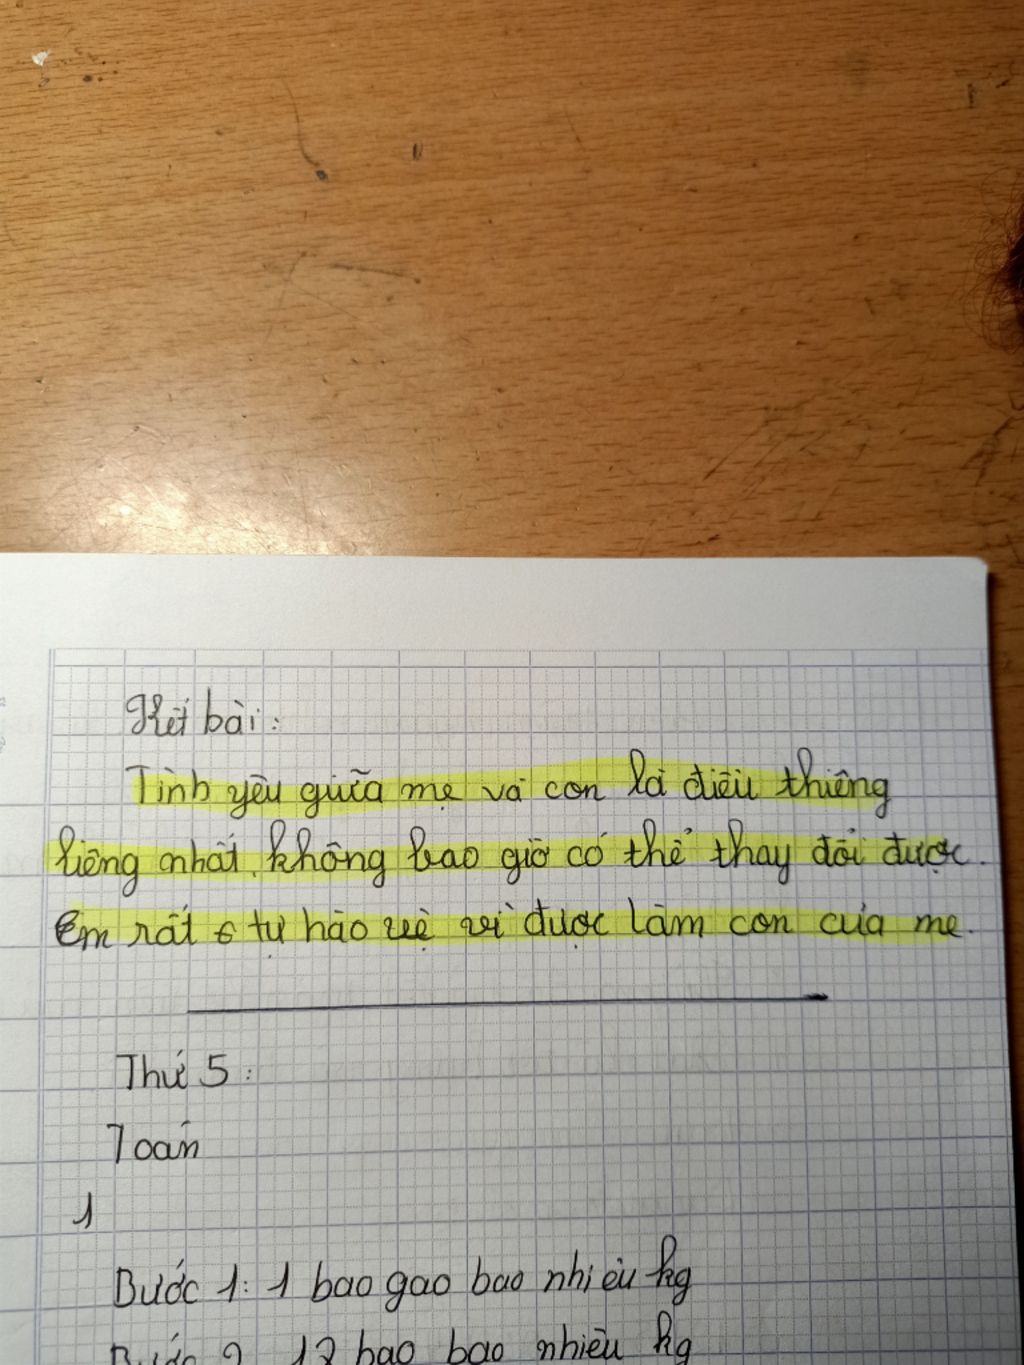 Kết bài:
Tình yêu giữa mẹ và con là điều thiêng
liêng nhất, không bao giờ có thể thay đổi được.
Em rất tự hào về vì được làm con của mẹ.
Thứ 5:
Toán
1
Bước 1: 1 bao gạo bao nhiêu kg
Bước 2 12 bao bao nhiêu kg